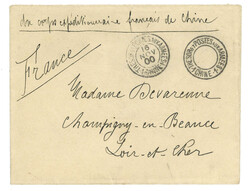 Du corps expéditionnaire français de Chine
France
Madame Devarenne
Champigny-en-Beauce
Loir-et-Cher